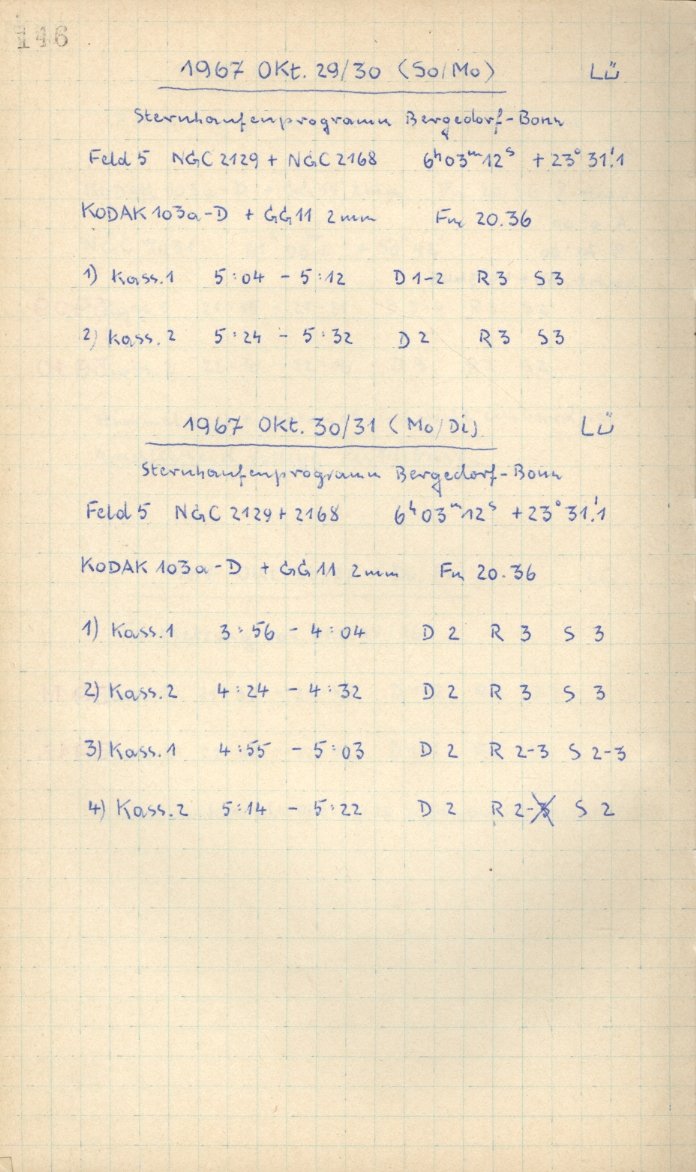 146
1967 Okt. 29/30 (So/Mo) Lü
Sternhaufenprogramm Bergedorf-Bonn
Feld 5 NGC 2129 + NGC 2168 6ʰ03ᵐ12ˢ +23°31!1
KODAK 103a-D + GG11 2mm Fn 20.36
1) Kass.1 5:04 - 5:12 D1-2 R3 S3
2) Kass.2 5:24 - 5:32 D2 R3 S3
1967 Okt. 30/31 (Mo/Di) Lü
Sternhaufenprogramm Bergedorf-Bonn
Feld 5 NGC 2129 + 2168 6ʰ03ᵐ12ˢ +23°31!1
KODAK 103a-D + GG11 2mm Fn 20.36
1) Kass.1 3:56 - 4:04 D 2 R 3 S 3
2) Kass.2 4:24 - 4:32 D 2 R 3 S 3
3) Kass.1 4:55 - 5:03 D 2 R 2-3 S 2-3
4) Kass.2 5:14 - 5:22 D 2 R 2-3 S 2